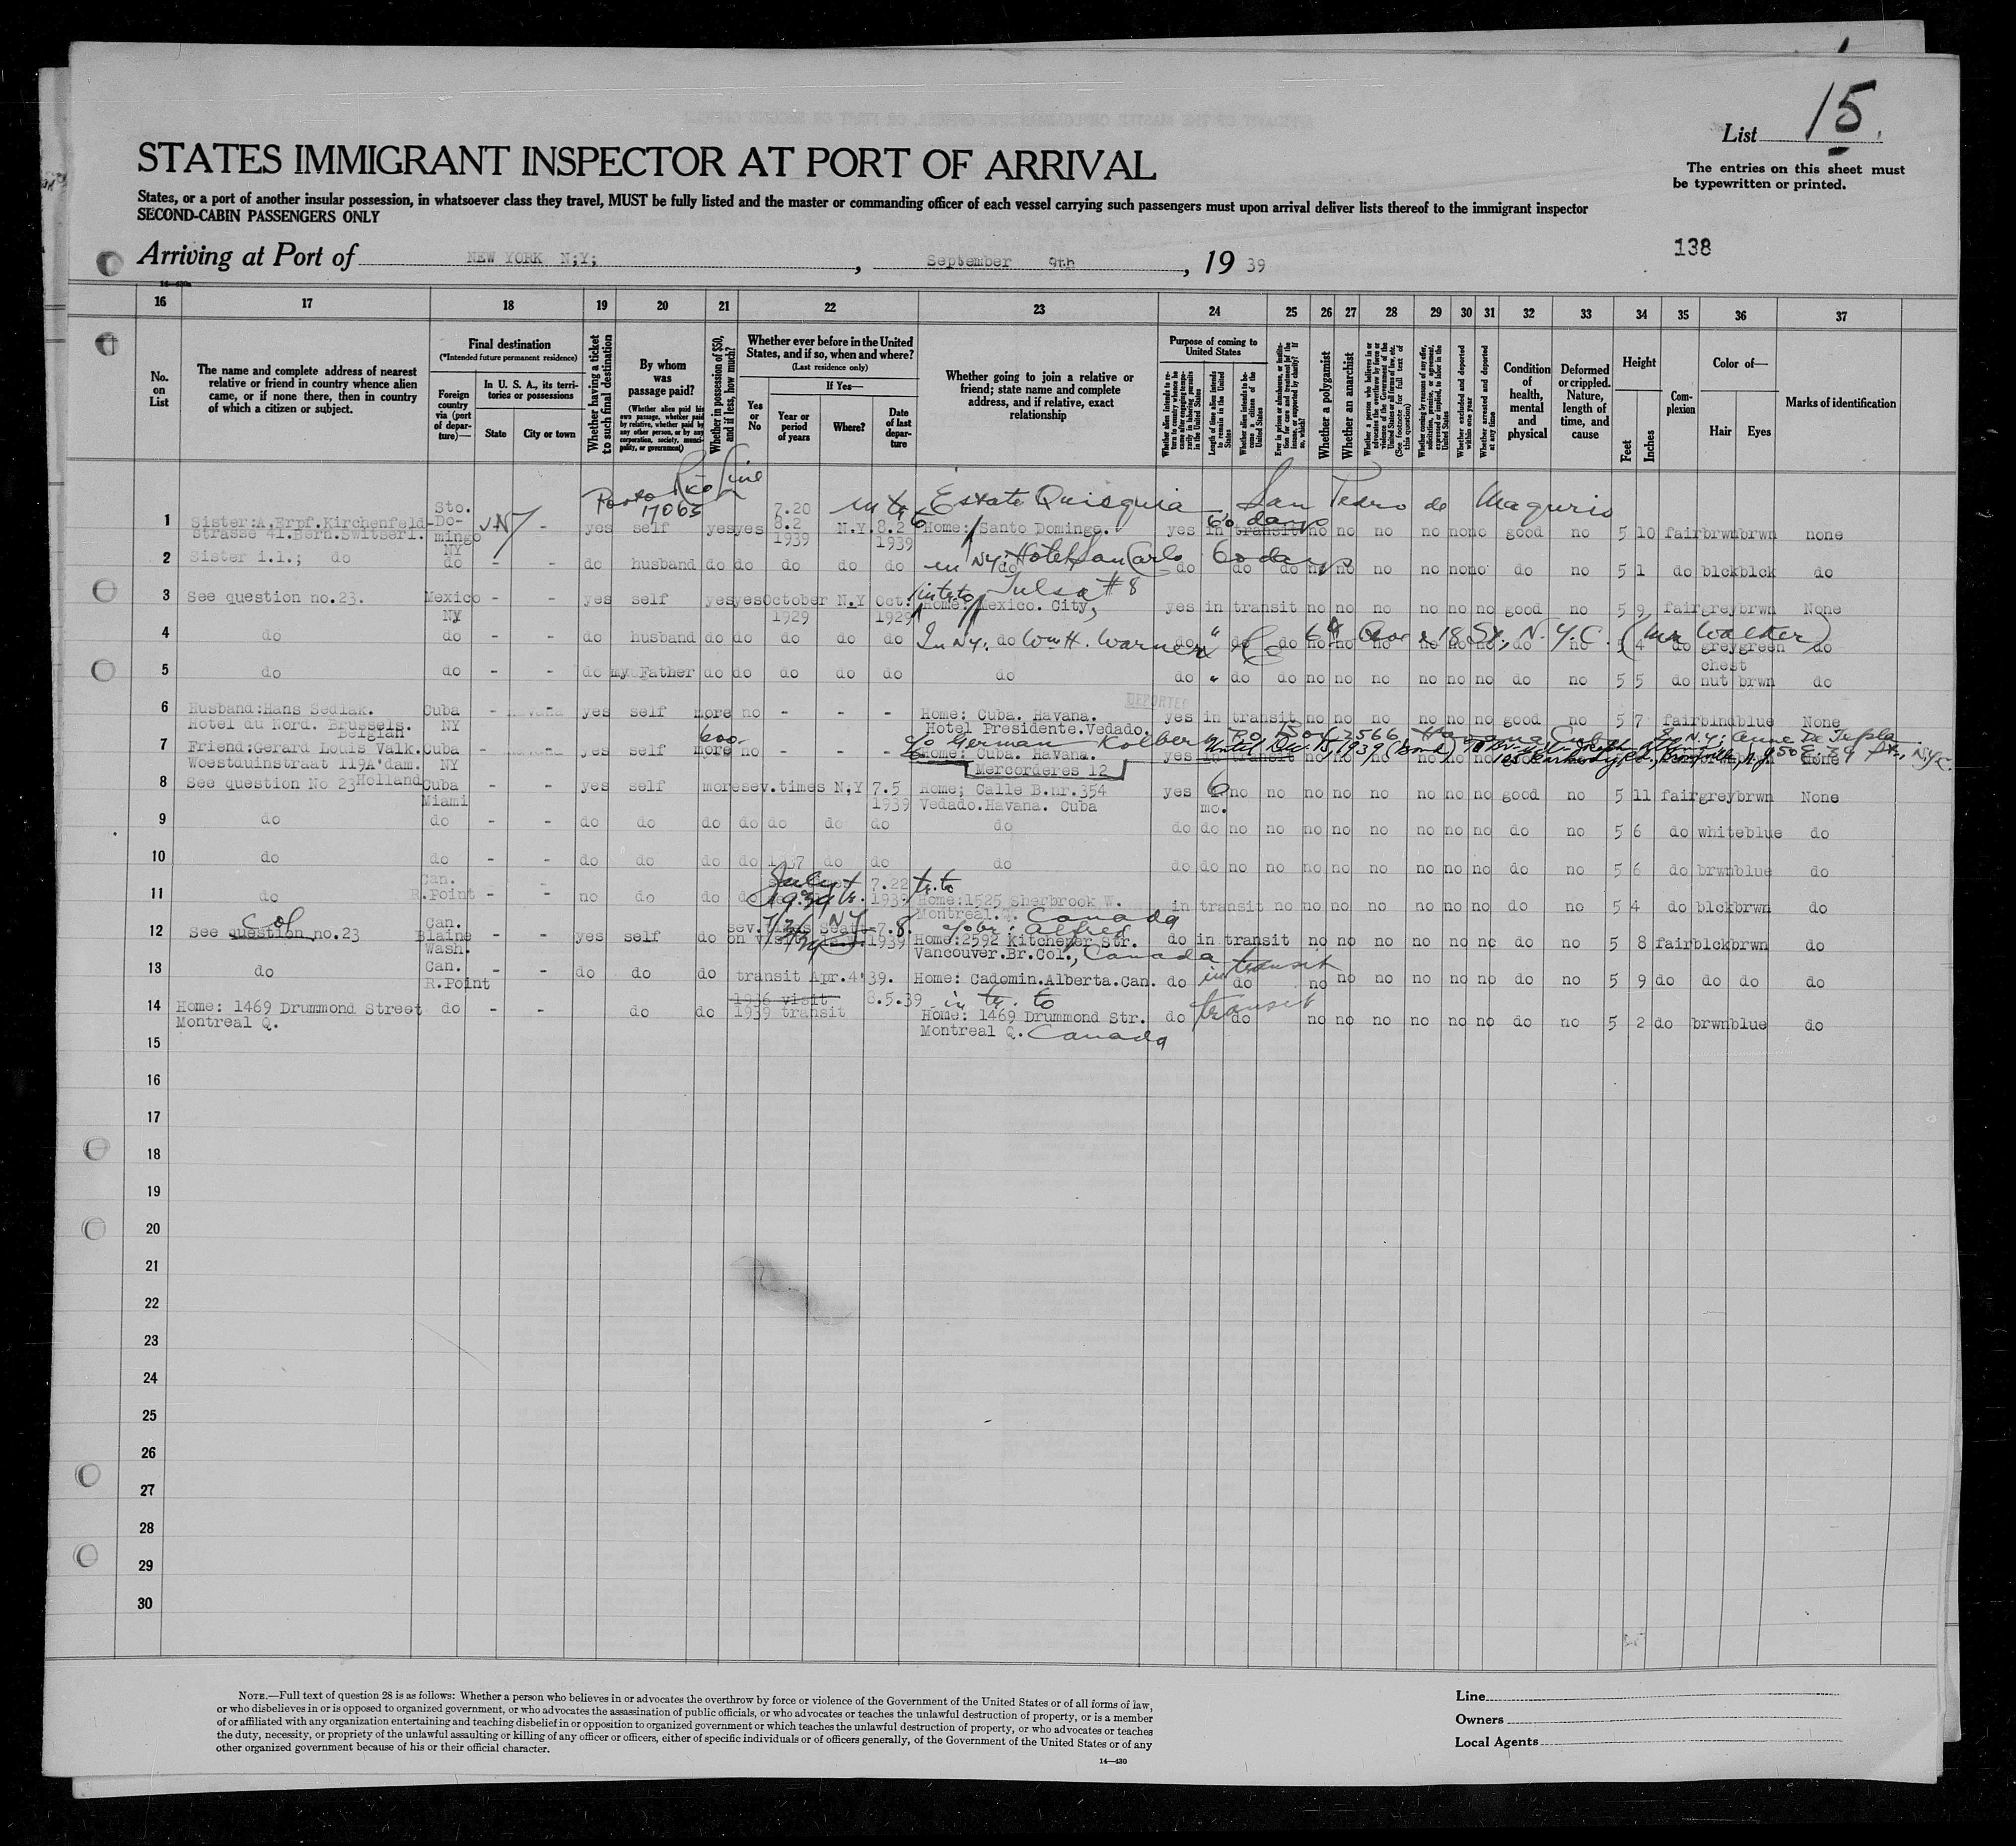 List 15.
The entries on this sheet must
be typewritten or printed.
STATES IMMIGRANT INSPECTOR AT PORT OF ARRIVAL
States, or a port of another insular possession, in whatsoever class they travel, MUST be fully listed and the master or commanding officer of each vessel carrying such passengers must upon arrival deliver lists thereof to the immigrant inspector
SECOND-CABIN PASSENGERS ONLY
Arriving at Port of NEW YORK N;Y; , September 9th , 19 39
138
16 17 18 19 20 21 22 23 24 25 26 27 28 29 30 31 32 33 34 35 36 37
No. on List
The name and complete address of nearest relative or friend in country whence alien came, or if none there, then in country of which a citizen or subject.
Final destination
(*Intended future permanent residence)
Foreign country via (port of departure)—
In U. S. A., its territories or possessions
State
City or town
Whether having a ticket to such final destination
By whom was passage paid?
(Whether alien paid his own passage, whether paid by relative, whether paid by any other person, or by any corporation, society, municipality, or government)
Whether in possession of $50, and if less, how much?
Whether ever before in the United States, and if so, when and where?
(Last residence only)
If Yes—
Yes or No
Year or period of years
Where?
Date of last departure
Whether going to join a relative or friend; state name and complete address, and if relative, exact relationship
Purpose of coming to United States
Length of time alien intends to remain in the United States
Whether alien intends to become a citizen of the United States
Whether a polygamist
Whether an anarchist
Whether excluded and deported within one year
Whether arrested and deported at any time
Condition of health, mental and physical
Deformed or crippled. Nature, length of time, and cause
Height
Feet
Inches
Complexion
Color of—
Hair
Eyes
Marks of identification
Porto Rico Line
17065
Estate Quisquia, San Pedro de Maquris
1 Sister:A.Erpf.Kirchenfeld- Sto. Do- yes self yes yes 7.20 8.2 1939 N.Y. 8.2 1939 Home: Santo Domingo. yes in transit no no no no no no good no 5 10 fair brwn brwn none
strasse 41.Bern.Switserl. mingo 60 days
NY
2 Sister i.l.; do do - - do husband do do do do do do do do do no no no no no no do no 5 1 do blck blck do
in NY. Hotel San Carlo 60 days
3 See question no.23. Mexico - - yes self yes yes October 1929 N.Y Oct. 1929 Home: Mexico. City, yes in transit no no no no no no good no 5 9 fair grey brwn None
Tulsa #8
NY
4 do do - - do husband do do do do do do do do do no no no no no no do no 5 4 do grey green do
In NY. Wm H. Warner & Co 18 St., N.Y.C. (Mr Walker)
5 do do - - do my Father do do do do do do do " do do no no no no no no do no 5 5 do chest nut brwn do
DEPORTED
6 Husband:Hans Sedlak. Cuba - yes self more no - - - Home: Cuba. Havana. yes in transit no no no no no no good no 5 7 fair blnd blue None
Hotel du Nord. Brussels. NY Hotel Presidente.Vedado.
Belgian
600.
c/o German Kolber PO Box 2566
7 Friend:Gerard Louis Valk. Cuba - yes self more no - - - Home: Cuba. Havana. yes in transit
until Dec. 15, 1939 (bond)
Woestduinstraat 119A'dam. NY Mercorderes 12 None
Holland
8 See question No 23 Cuba - - yes self more sev.times N;Y 7.5 1939 Home; Calle B.nr.354 yes 6 mo. no no no no no no no no good no 5 11 fair grey brwn None
Miami Vedado.Havana. Cuba
9 do do - - do do do do do do do do do do no no no no no no no no do no 5 6 do white blue do
10 do do - - do do do do 1937 do do do do do no no no no no no no no do no 5 6 do brwn blue do
11 do Can. R.Point - - no do do July 1939 7.22 1939 tr. to Home:1525 Sherbrook W. in transit no no no no no no no do no 5 4 do blck brwn do
Montreal. Canada
12 See question no.23 Can. Blaine Wash. - - yes self do sev. times on visit 7.8. 1939 Home:2592 Kitchener Str. do in transit no no no no no no do no 5 8 fair blck brwn do
Vancouver.Br.Col., Canada
13 do Can. R.Point - - do do do transit Apr.4'39. Home: Cadomin.Alberta.Can. do in transit do no no no no no no do no 5 9 do do do do
14 Home: 1469 Drummond Street do - - do do 1936 visit 8.5.39 in tr. to do transit do no no no no no no do no 5 2 do brwn blue do
Montreal Q. 1939 transit Home: 1469 Drummond Str.
Montreal Q. Canada
15
16
17
18
19
20
21
22
23
24
25
26
27
28
29
30
NOTE.—Full text of question 28 is as follows: Whether a person who believes in or advocates the overthrow by force or violence of the Government of the United States or of all forms of law,
or who disbelieves in or is opposed to organized government, or who advocates the assassination of public officials, or who advocates or teaches the unlawful destruction of property, or is a member
of or affiliated with any organization entertaining and teaching disbelief in or opposition to organized government or which teaches the unlawful destruction of property, or who advocates or teaches
the duty, necessity, or propriety of the unlawful assaulting or killing of any officer or officers, either of specific individuals or of officers generally, of the Government of the United States or of any
other organized government because of his or their official character.
14—430
Line
Owners
Local Agents